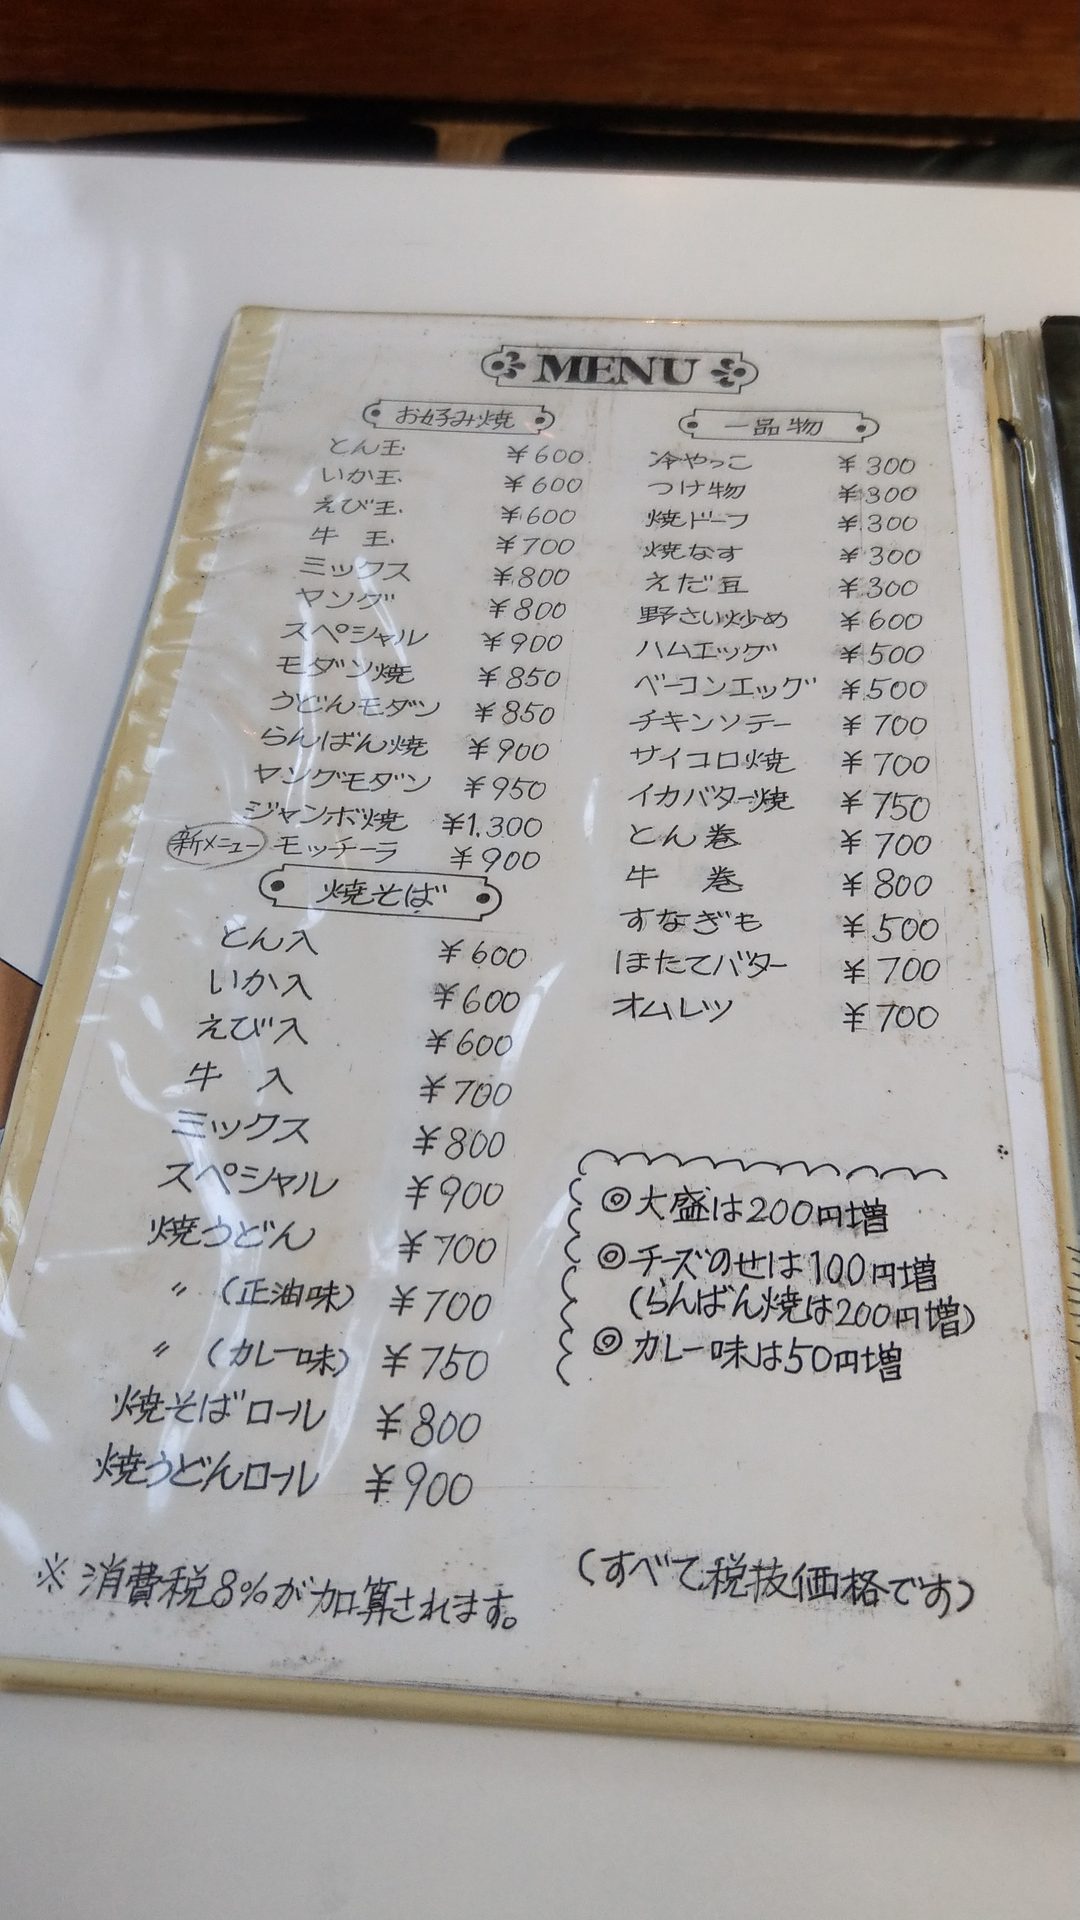 MENU
お好み焼
とん玉 ¥600
いか玉 ¥600
えび玉 ¥600
牛 玉 ¥700
ミックス ¥800
ヤング ¥800
スペシャル ¥900
モダン焼 ¥850
うどんモダン ¥850
らんばん焼 ¥900
ヤングモダン ¥950
ジャンボ焼 ¥1.300
新メニュー モッチーラ ¥900
焼そば
とん入 ¥600
いか入 ¥600
えび入 ¥600
牛 入 ¥700
ミックス ¥800
スペシャル ¥900
焼うどん ¥700
〃 (正油味) ¥700
〃 (カレー味) ¥750
焼そばロール ¥800
焼うどんロール ¥900
一品物
冷やっこ ¥300
つけ物 ¥300
焼ドーフ ¥300
焼なす ¥300
えだ豆 ¥300
野さい炒め ¥600
ハムエッグ ¥500
ベーコンエッグ ¥500
チキンソテー ¥700
サイコロ焼 ¥700
イカバター焼 ¥750
とん巻 ¥700
牛 巻 ¥800
すなぎも ¥500
ほたてバター ¥700
オムレツ ¥700
◎大盛は200円増
◎チーズのせは100円増
(らんばん焼は200円増)
◎カレー味は50円増
※消費税8%が加算されます。
(すべて税抜価格です)